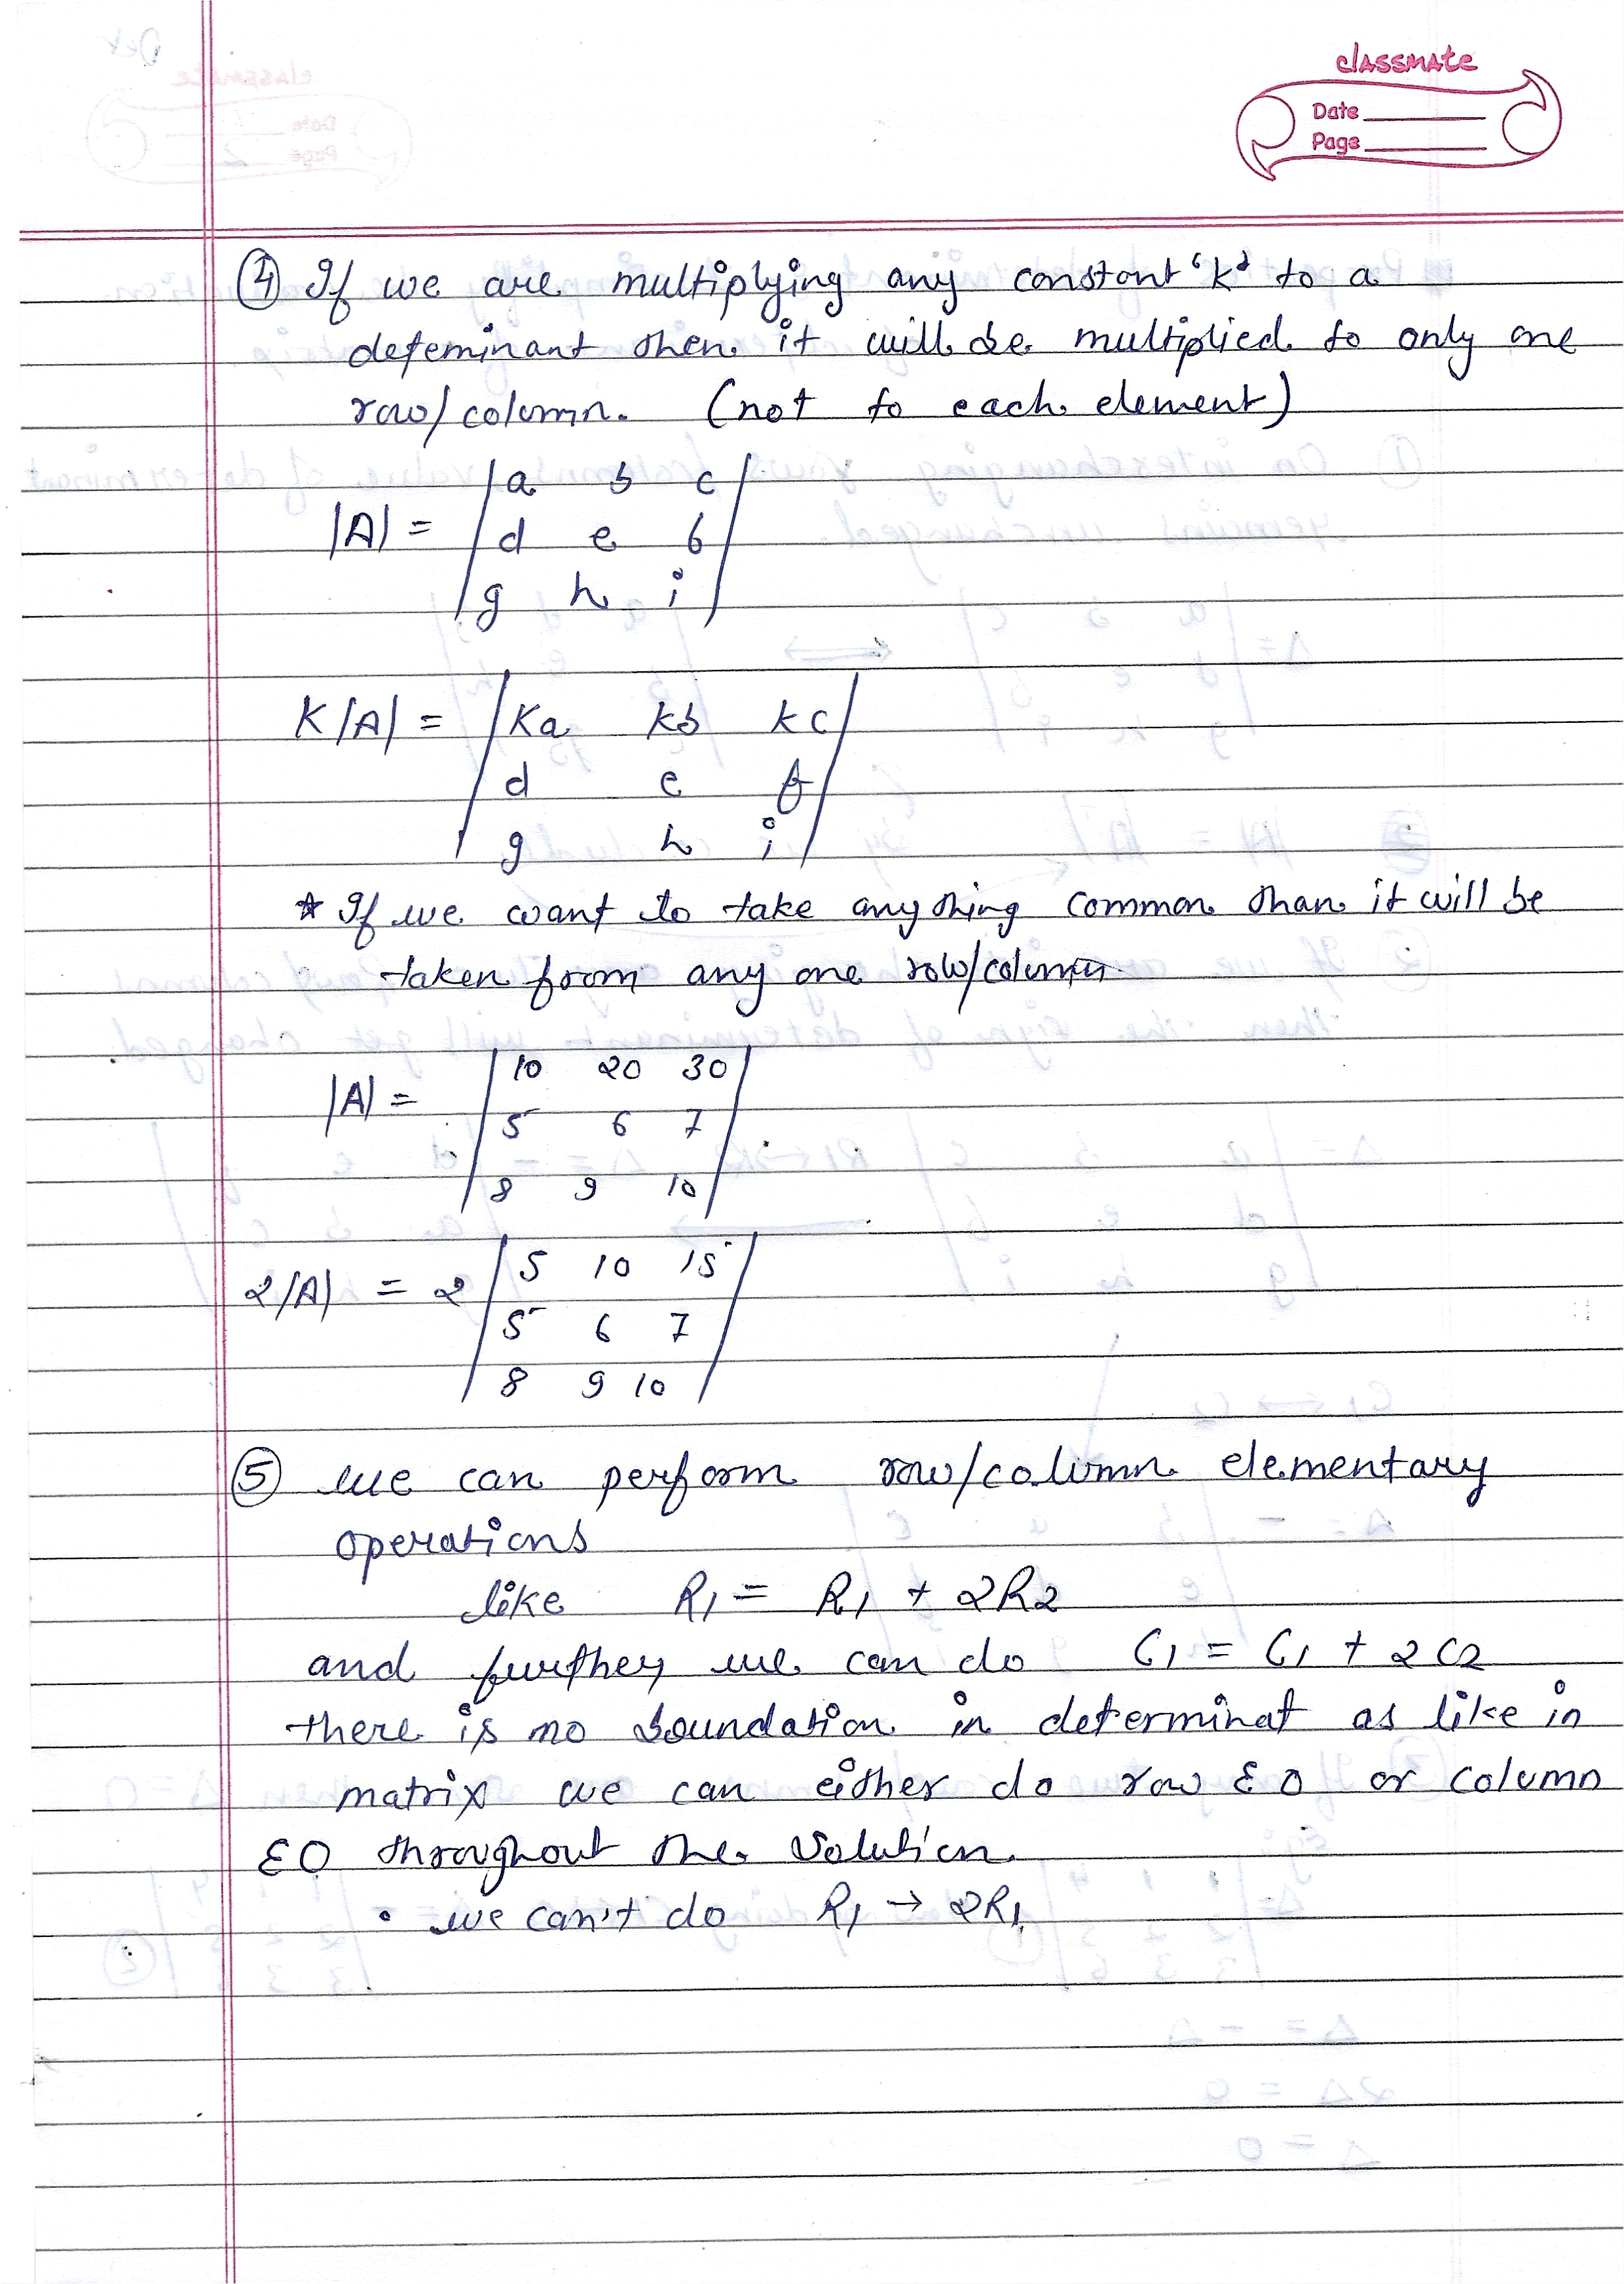 classmate
Date
Page
④ If we are multiplying any constant 'k' to a
defeminant then it will be multiplied to only one
row/column. (not to each element)
|A| = | a b c |
| d e 6 |
| g h i |
K|A| = | Ka kb kc |
| d e f |
| g h i |
* If we want to take anything common than it will be
taken from any one row/column
|A| = | 10 20 30 |
| 5 6 7 |
| 8 9 10 |
2|A| = 2 | 5 10 15 |
| 5 6 7 |
| 8 9 10 |
⑤ we can perform row/column elementary
operations
like R1 = R1 + 2R2
and further we can do C1 = C1 + 2C2
there is no boundation in determinat as like in
matrix we can either do row EO or column
EO throughout the solution.
• we can't do R1 → 2R1